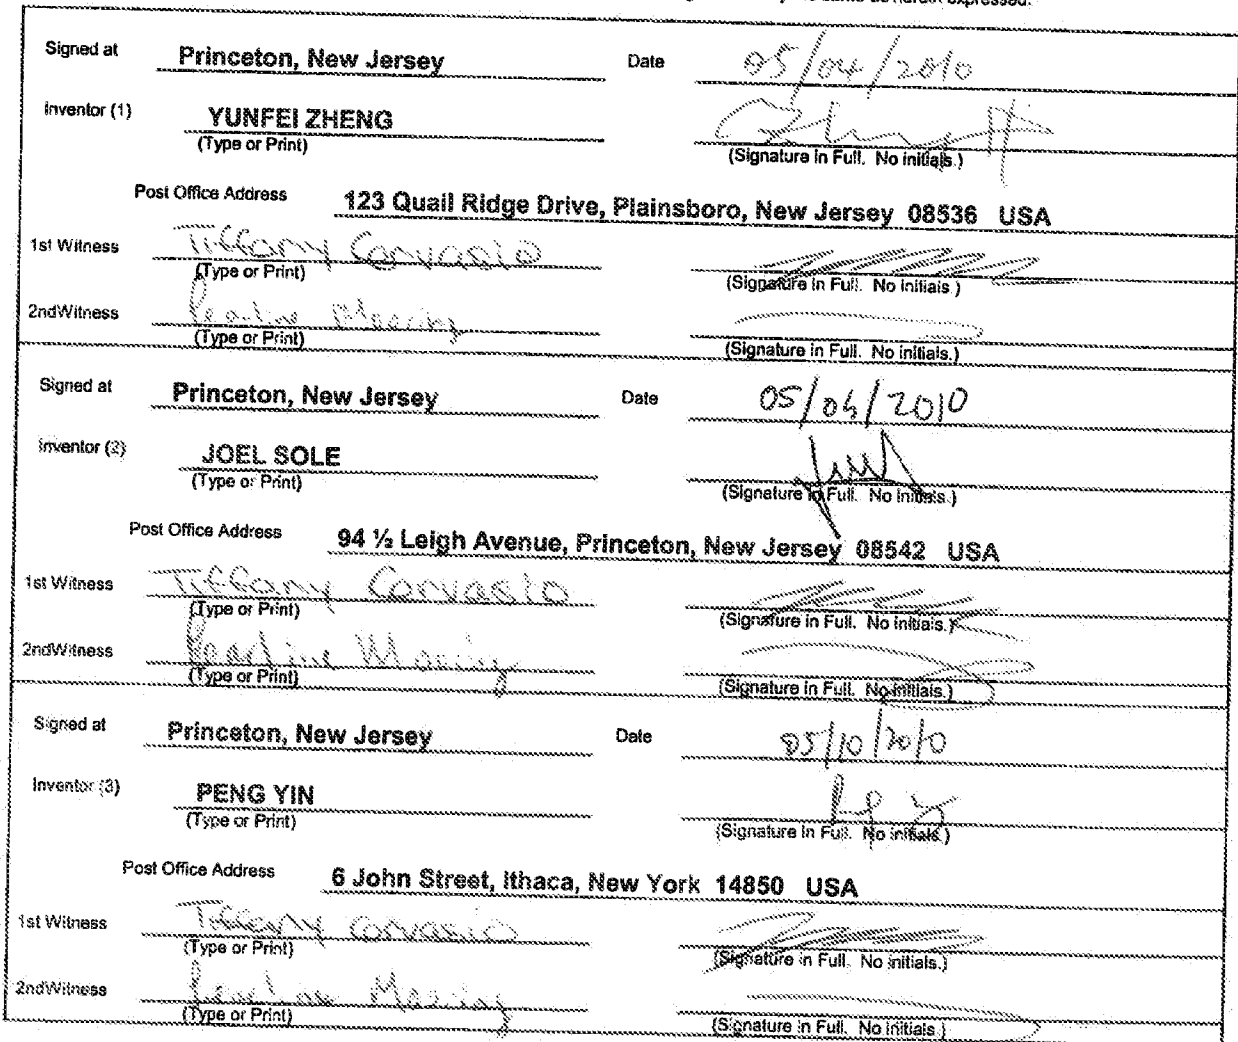 same as herein expressed.
Signed at Princeton, New Jersey Date 05/04/2010
Inventor (1) YUNFEI ZHENG
(Type or Print) (Signature in Full. No initials.)
Post Office Address 123 Quail Ridge Drive, Plainsboro, New Jersey 08536 USA
1st Witness Tiffany Corvasio
(Type or Print) (Signature in Full. No initials.)
2ndWitness Pearline
(Type or Print) (Signature in Full. No initials.)
Signed at Princeton, New Jersey Date 05/04/2010
Inventor (2) JOEL SOLE
(Type or Print) (Signature in Full. No initials.)
Post Office Address 94 ½ Leigh Avenue, Princeton, New Jersey 08542 USA
1st Witness Tiffany Corvasio
(Type or Print) (Signature in Full. No initials.)
2ndWitness Pearline
(Type or Print) (Signature in Full. No initials.)
Signed at Princeton, New Jersey Date 05/10/2010
Inventor (3) PENG YIN
(Type or Print) (Signature in Full. No initials.)
Post Office Address 6 John Street, Ithaca, New York 14850 USA
1st Witness Tiffany Corvasio
(Type or Print) (Signature in Full. No initials.)
2ndWitness Pearline
(Type or Print) (Signature in Full. No initials.)